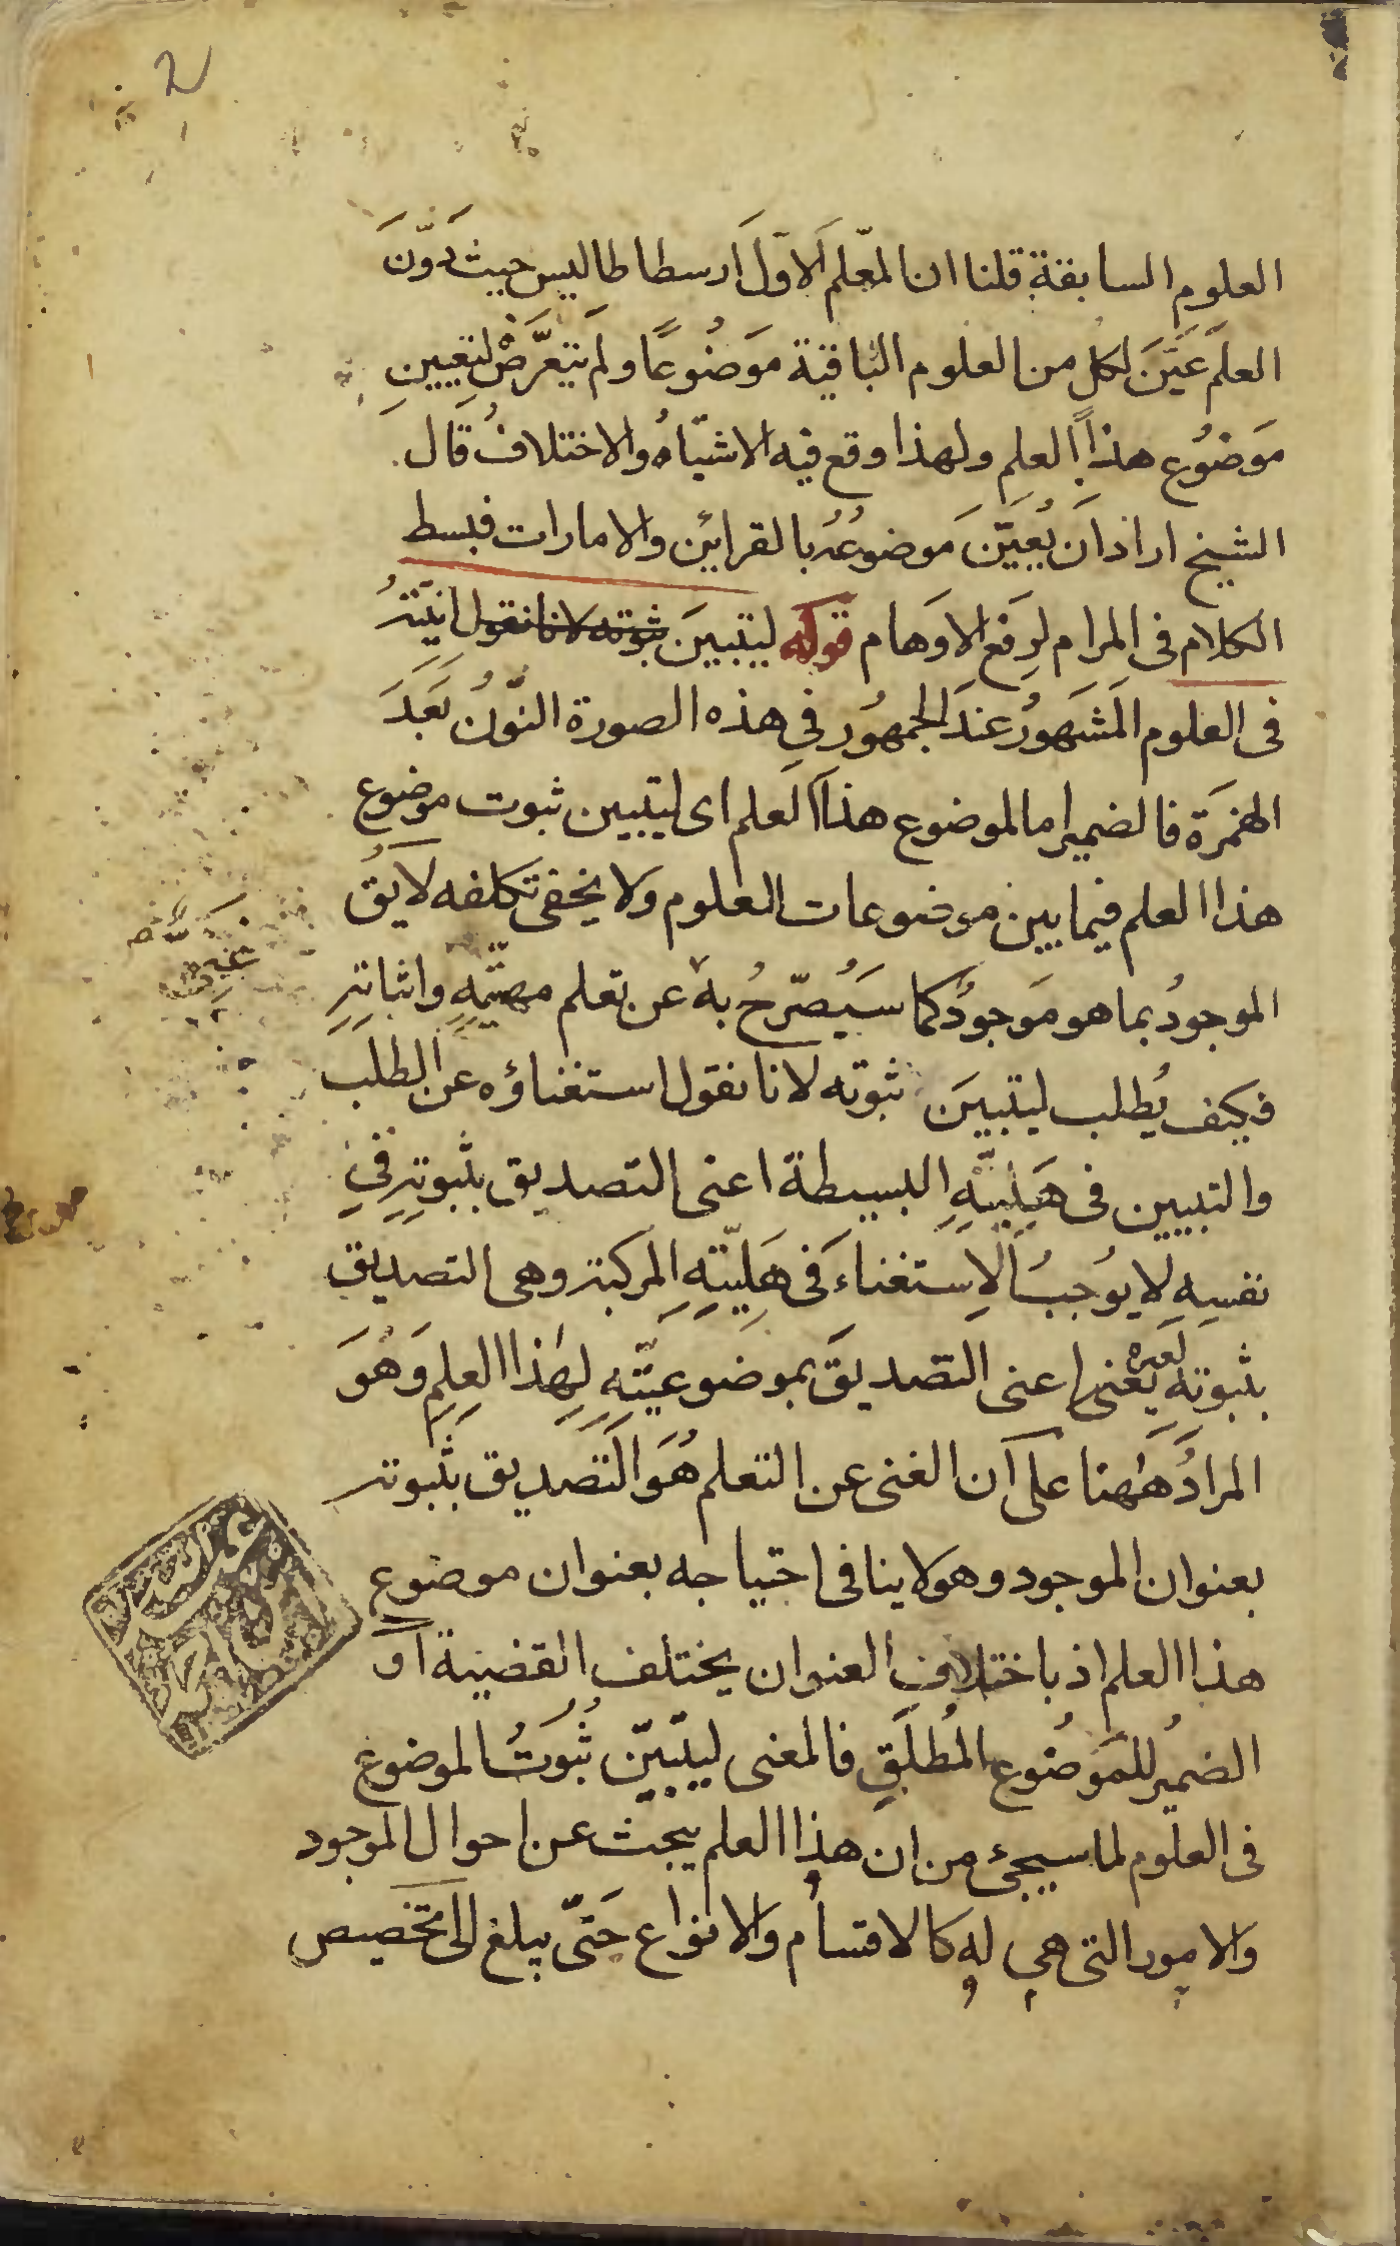 العلوم السابقة قلنا ان المعّلم الاَوّلَ اَرسطاطاليس حيث دَوَّنَ
العلمَ عَيَّنَ لكل من العلوم البَاقية مَوضُوعًا ولم يتعَّرَضْ لتعيينِ
مَوضُوع هذا العلمِ ولهذا وقع فيه الاشتباهُ والاختلافُ قال
الشيخ اراد اَن يُعيّنَ مَوضوعُهُ بالقراين والامارات فبسط
الكلام فى المرام لرفع الاوهام قوله ليتبينَ ثبوته لانا نقول انيّتهُ
فى العلوم المشَهورُ عندَ الجمهُور فى هذه الصورة النّونُ بَعَدَ
الهمَزة فالضمير اما لموضوع هذا العلم اى ليتبين ثبوت موضوع
هذا العلم فيما بين موضوعات العلوم وَلا يخفى تكلفه لا يقُ
الموجودُ بما هو مَوجودٌ كما سَيُصّرحُ به عن تعلم مهيّتِهِ واثباتهِ
فكيف يُطلب ليتبيَن ثبوته لانا نقول استغناؤه عن الطلَب
والتبيين فى هَليّتهِ البسيطة اعنى التصديق بثبوتهِ فى
نفسِهِ لا يوُجبُ الاِستغناءَ فى هَلِيّتهِ المركبة وهى التصديقِ
بثبوتهِ لغيره يَعنى اعنى التصديقَ بموضوعيّتهِ لهٰذا العلمِ وَهُوَ
المرادُ هٰهنا على اَن الغنى عن التعلم هُوَ التَصديق بثبوته
بعنوان الموجود وهو لا ينافى احتياجه بعنوان موضوع
هذا العلم اذ باختلاف العنوان يختلف القضية اَو
الضميُر للمَوضُوع المُطلَقِ فالمعنى ليتبيّن ثُبُوتُ الموضوع
فى العلوم لما سيجئ من ان هذا العلم يبحث عن احوال الموجود
والامور التى هى له كالاقسام وَالانواع حَتىّ يبلغ الى تخصيص